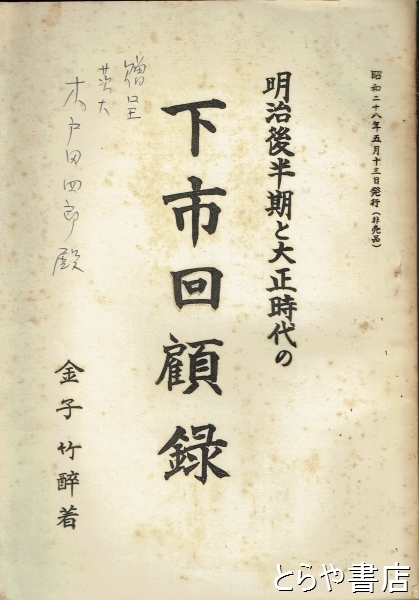 昭和二十八年五月十三日発行(非売品)
明治後半期と大正時代の
下市回顧録
金子竹醉著
贈呈
茨大
木戸田四郎殿
とらや書店